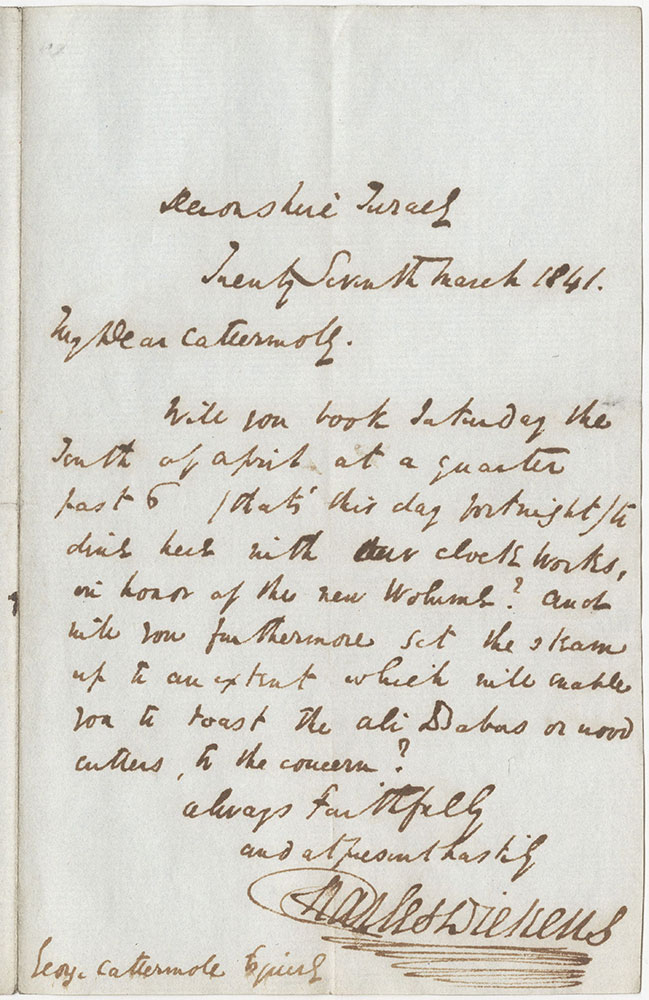 Devonshire Terrace
Twenty Seventh March 1841.
My Dear Cattermole.
Will you book Saturday the
Tenth of April at a quarter
past 6 (that's this day fortnight) to
dine here with our clock Works,
in honor of the new Wolume? And
will you furthermore get the steam
up to an extent which will enable
you to toast the Ali Babas or wood
cutters, to the concern?
always Faithfully
and at present hastily
Charles Dickens
George Cattermole Esquire